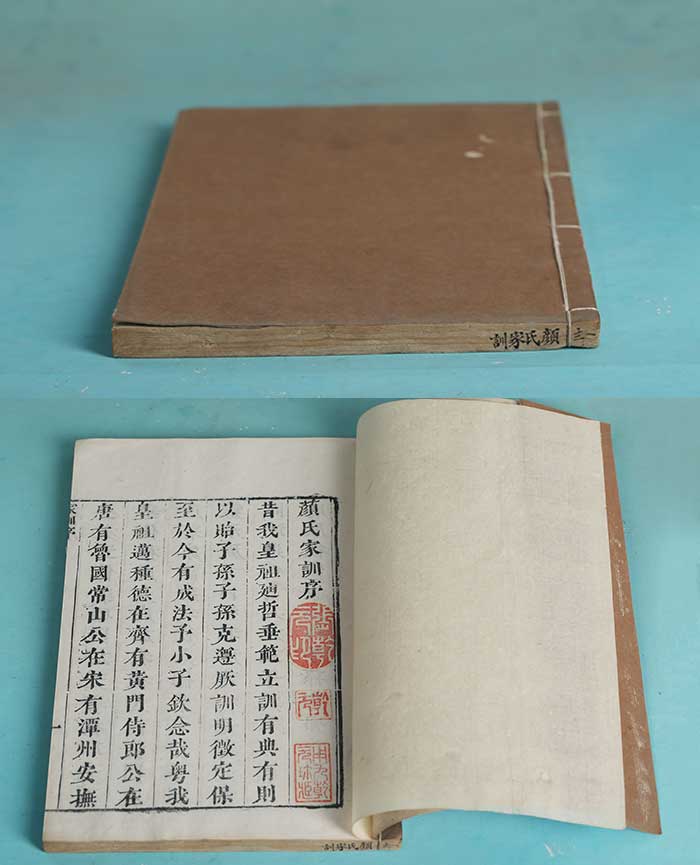 顏氏家訓
顏氏家訓序
昔我皇祖廸哲垂範立訓有典有則
以貽子孫子孫克遵厥訓明徵定保
至於今有成法予小子欽念哉粵我
皇祖邁種德在齊有黃門侍郎公在
唐有魯國常山公在宋有潭州安撫
家訓序
一
顏氏家訓